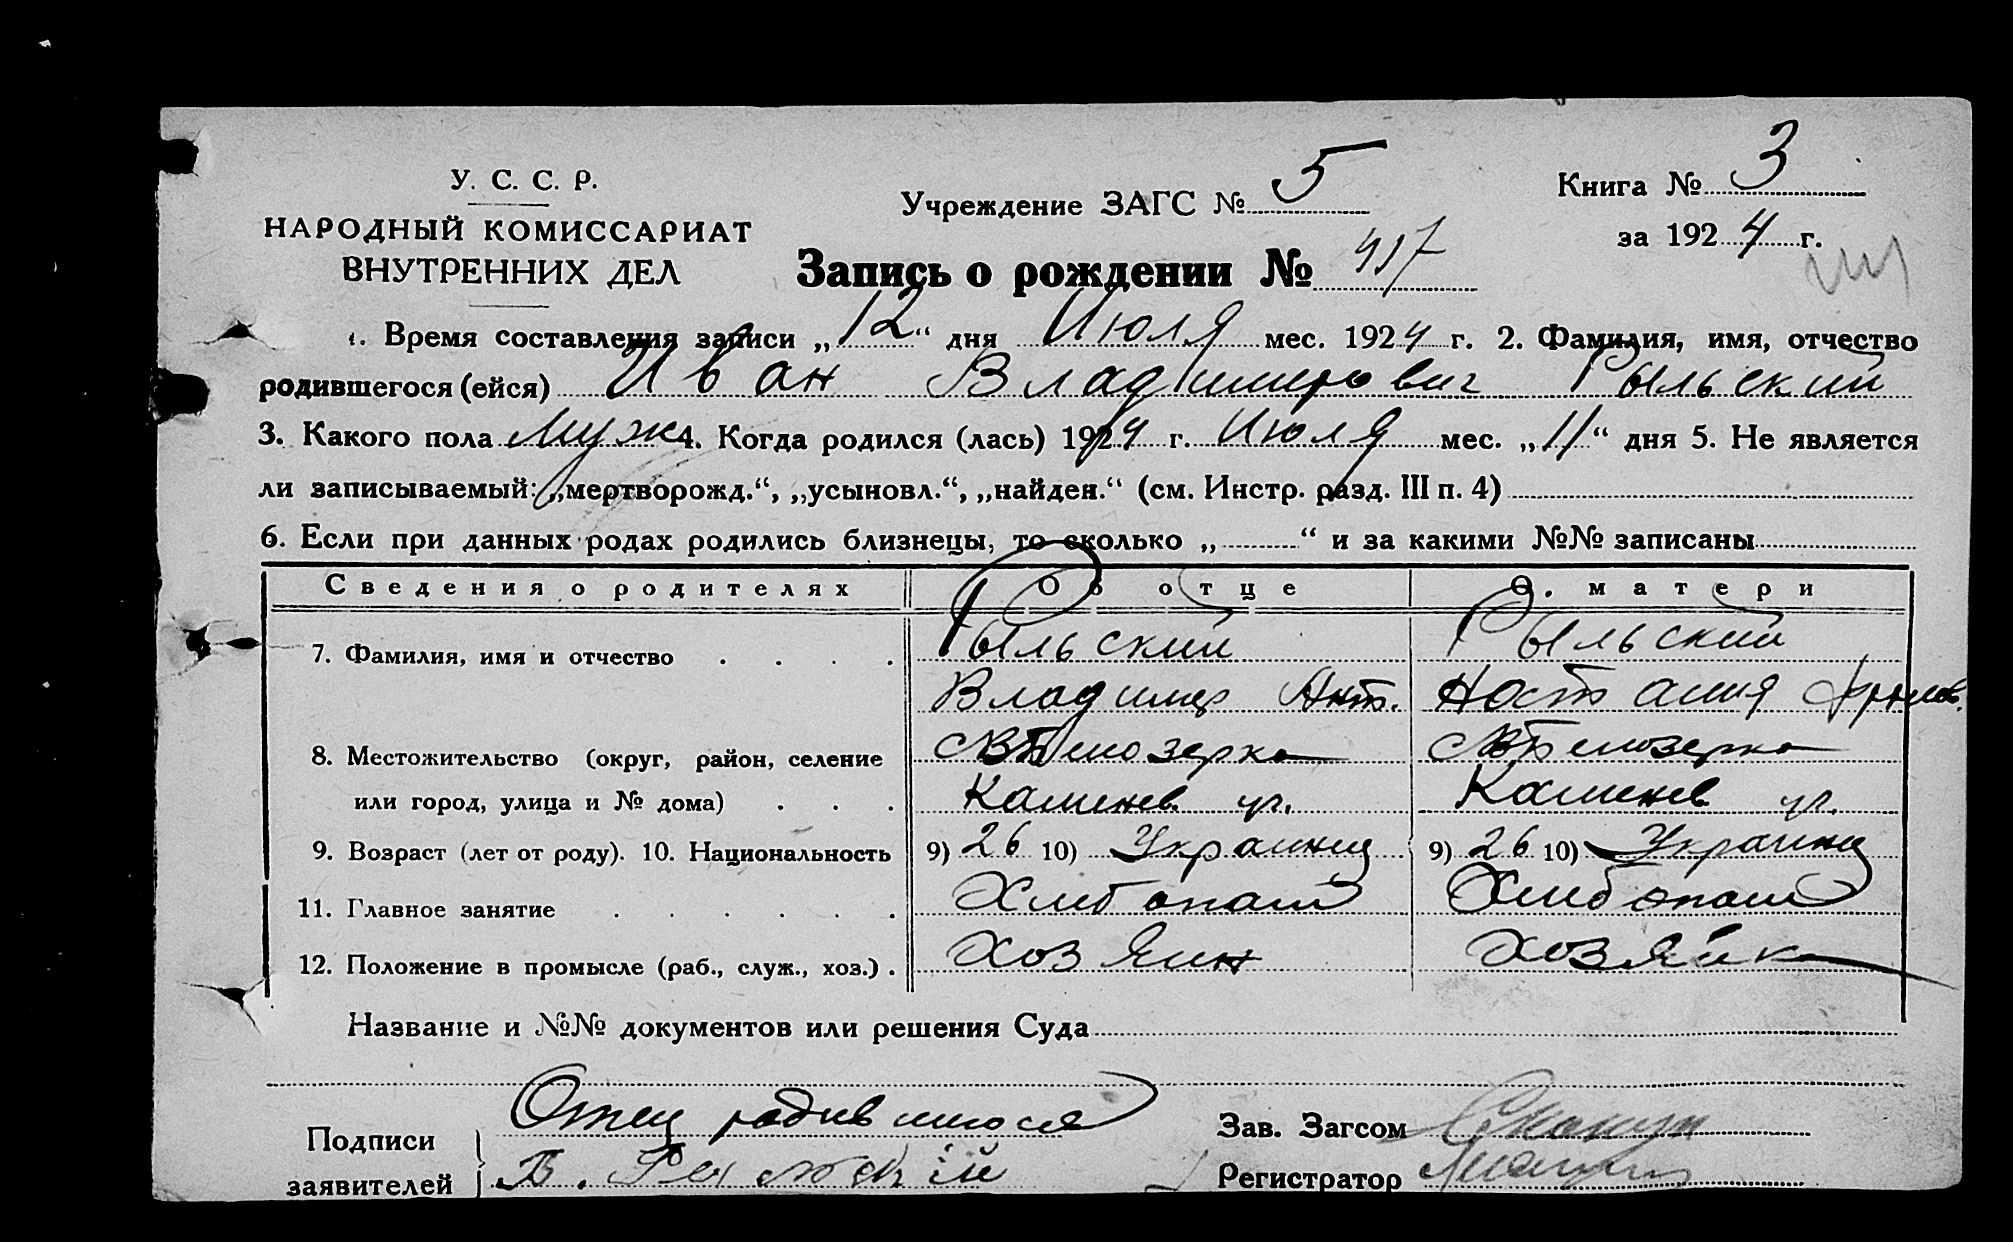 У. С. С. Р.
НАРОДНЫЙ КОМИССАРИАТ
ВНУТРЕННИХ ДЕЛ
Учреждение ЗАГС № 5
Книга № 3
за 1924 г.
Запись о рождении № 417
1. Время составления записи „12“ дня Июля мес. 1924 г. 2. Фамилия, имя, отчество
родившегося (ейся) Иван Владимирович Рыльский
3. Какого пола Муж 4. Когда родился (лась) 1924 г. Июля мес. „11“ дня 5. Не является
ли записываемый: „мертворожд.“, „усыновл.“, „найден.“ (см. Инстр. разд. III п. 4)
6. Если при данных родах родились близнецы, то сколько „ “ и за какими №№ записаны
Сведения о родителях Об отце О матери
7. Фамилия, имя и отчество Рыльский Рыльский
Владимир Ант. Настасия
8. Местожительство (округ, район, селение Белозерка Белозерка
или город, улица и № дома) Каменев. ул. Каменев ул.
9. Возраст (лет от роду). 10. Национальность 9) 26 10) Украинец 9) 26 10) Украинец
11. Главное занятие Хлибопаш Хлибопаш
12. Положение в промысле (раб., служ., хоз.) Хозяин Хозяйка
Название и №№ документов или решения Суда
Подписи
заявителей
Отец родившегося
В.
Зав. Загсом
Регистратор